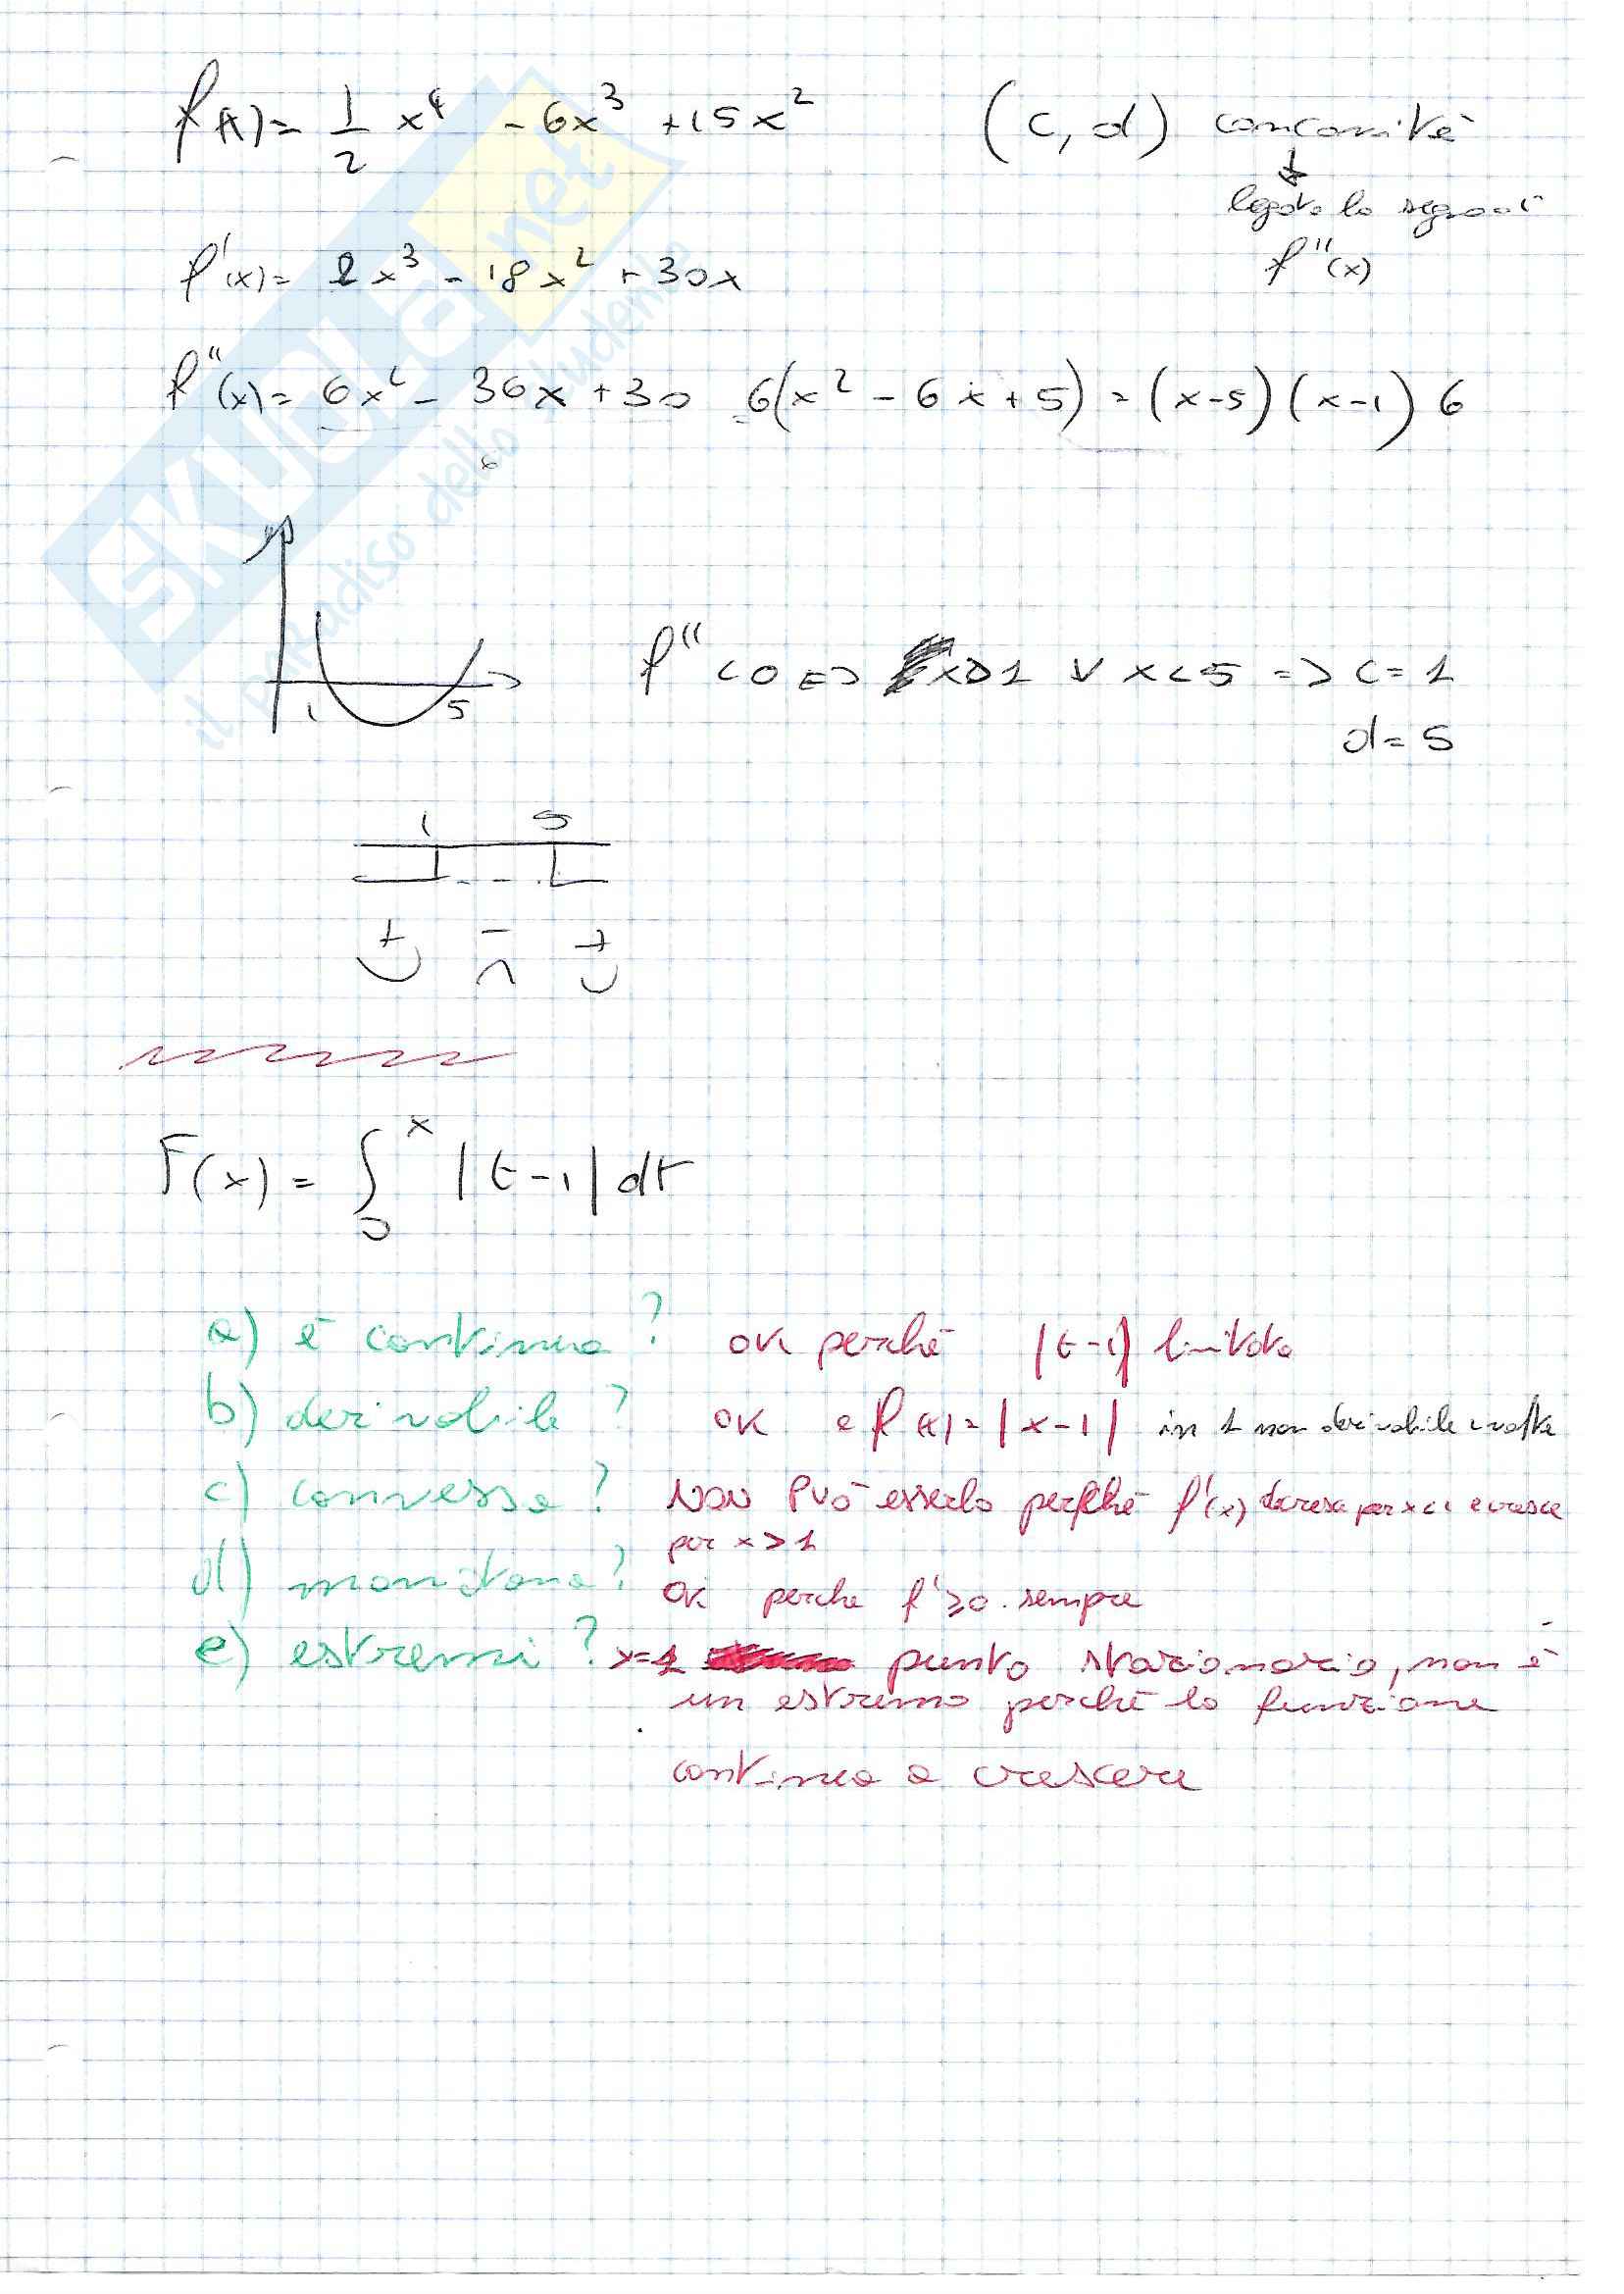 f(x) = 1/2 x⁴ - 6x³ + 15x² (c, d) concavità
↓
legato la segno di
f''(x)
f'(x) = 2x³ - 18x² + 30x
f''(x) = 6x² - 36x + 30 6(x² - 6x + 5) = (x-5)(x-1) 6
f'' < 0 <=> x>1 ∨ x<5 => c = 1
d = 5
1 5
1 5
+ - +
F(x) = ∫₀ˣ |t-1| dt
a) è continua? OK perchè |t-1| limitata
b) derivabile? OK e f(x) = |x-1| in 1 non derivabile 2 volte
c) convessa? NON PUÒ esserlo perchè f'(x) decresce per x<1 e cresce
per x > 1
d) monotona? OK perche f' ≥0 sempre
e) estremi? x=1 punto stazionario, non è
un estremo perchè la funzione
continua a crescere
SKUOLA.net
il paradiso dello studente